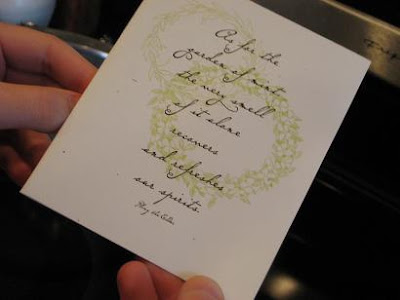 As for the
garden of mint
the very smell
of it alone
recovers
and refreshes
our spirits.
Pliny the Elder